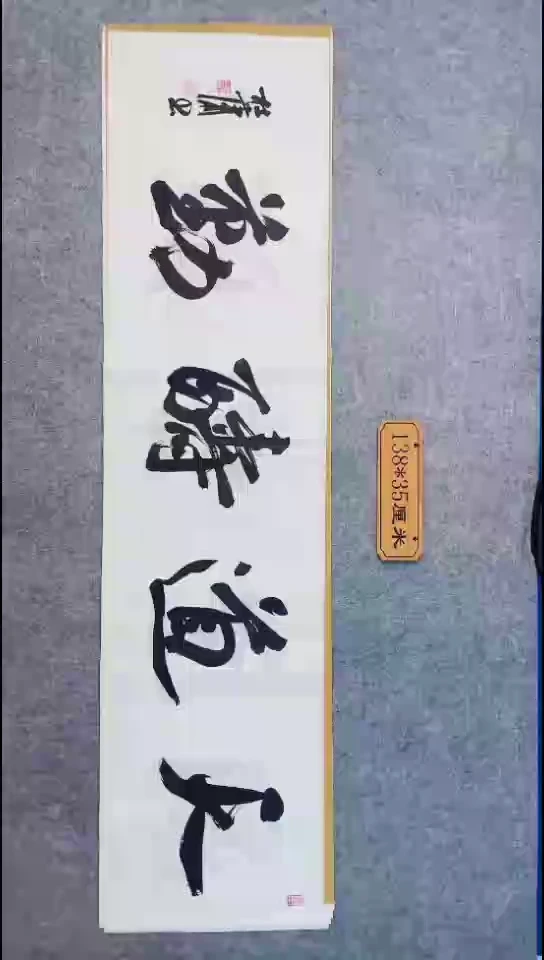 天道酬勤
138*35厘米